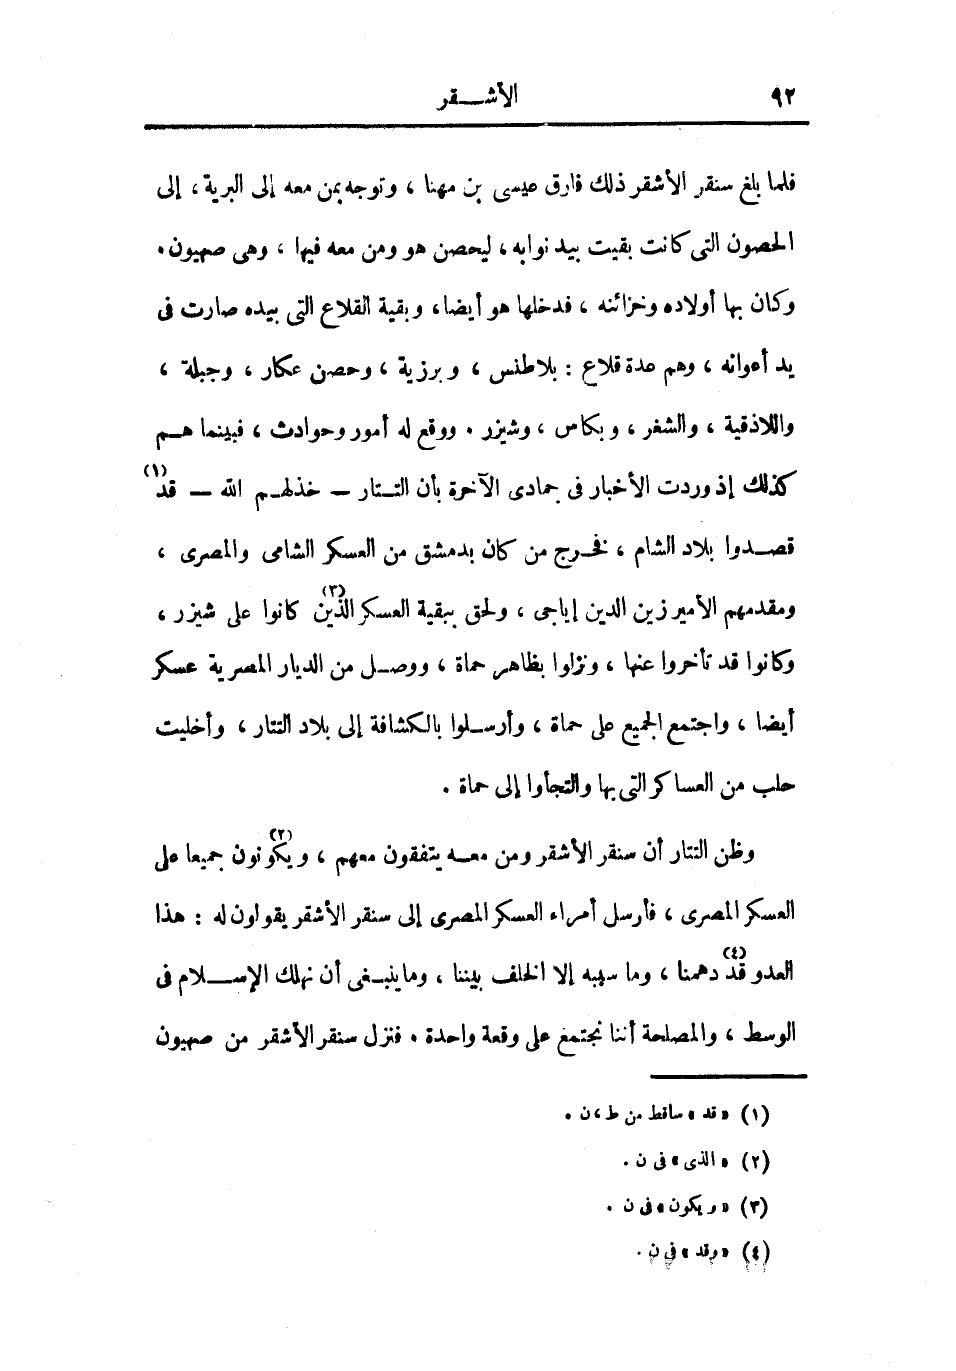 ٩٢
الأشـــقر
فلما بلغ سنقر الأشقر ذلك فارق عيسى بن مهنا ، وتوجه بمن معه إلى البرية ، إلى
الحصون التى كانت بقيت بيد نوابه ، ليحصن هو ومن معه فيها ، وهى صهيون .
وكان بها أولاده وخزائنه ، فدخلها هو أيضا ، وبقية القلاع التى بيده صارت فى
يد أعوانه ، وهم عدة قلاع : بلاطنس ، وبرزية ، وحصن عكار ، وجبلة ،
واللاذقية ، والشغر ، وبكاس ، وشيزر . ووقع له أمور وحوادث ، فبينما هـم
كذلك إذ وردت الأخبار فى جمادى الآخرة بأن التـتار – خذلهـم الله – قد (١)
قصـدوا بلاد الشام ، فخـرج من كان بدمشق من العسكر الشامى والمصرى ،
ومقدمهم الأمير زين الدين إياجى ، ولحق ببقية العسكر الذين (٣) كانوا على شيزر ،
وكانوا قد تأخروا عنها ، ونزلوا بظاهر حماة ، ووصـل من الديار المصرية عسكر
أيضا ، واجتمع الجميع على حماة ، وأرسـلوا بالكشافة إلى بلاد التتار ، وأخليت
حلب من العساكر التى بها والتجأوا إلى حماة .
وظن التتار أن سنقر الأشقر ومن معـه يتفقون معهم ، ويكونون (٢) جميعا على
العسكر المصرى ، فأرسل أمراء العسكر المصرى إلى سنقر الأشقر يقولون له : هذا
العدو قد (٤) دهمنا ، وما سببه إلا الخلف بيننا ، وما ينبـغى أن نهلك الإســلام فى
الوسط ، والمصلحة أننا نجتمع على وقعة واحدة . فنزل سنقر الأشقر من صهيون
(١) « قد » ساقط من ط ، ن .
(٢) « الذى » فى ن .
(٣) « ويكون » فى ن .
(٤) « وقد » فى ن .